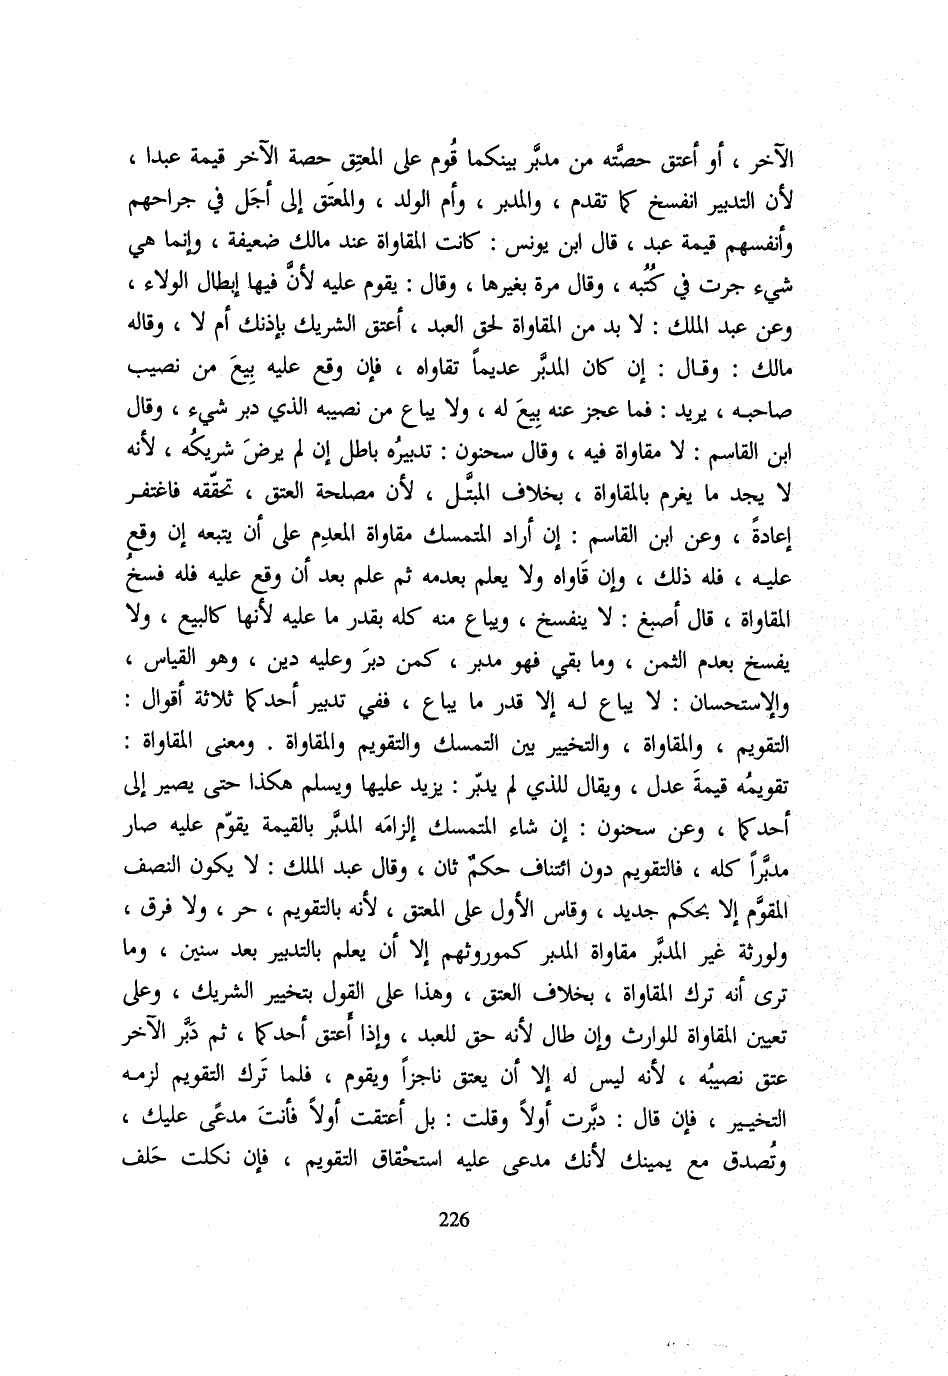 الآخر ، أو أعتق حصَّته من مدبَّر بينكما قُوم على المعتِق حصة الآخر قيمة عبدا ،
لأن التدبير انفسخ كما تقدم ، والمدبر ، وأم الولد ، والمعتَق إلى أجَل في جراحهم
وأنفسهم قيمة عبد ، قال ابن يونس : كانت المقاواة عند مالك ضعيفة ، وإنما هي
شيء جرت في كُتُبه ، وقال مرة بغيرها ، وقال : يقوم عليه لأنَّ فيها إبطال الولاء ،
وعن عبد الملك : لا بد من المقاواة لحق العبد ، أعتق الشريك بإذنك أم لا ، وقاله
مالك : وقال : إن كان المدبَّر عديماً تقاواه ، فإن وقع عليه بِيعَ من نصيب
صاحبه ، يريد : فما عجز عنه بِيعَ له ، ولا يباع من نصيبه الذي دبر شيء ، وقال
ابن القاسم : لا مقاواة فيه ، وقال سحنون : تدبيرُه باطل إن لم يرضَ شريكُه ، لأنه
لا يجد ما يغرم بالمقاواة ، بخلاف المبتَّل ، لأن مصلحة العتق ، تحقّقه فاغتفر
إعادةً ، وعن ابن القاسم : إن أراد المتمسك مقاواة المعدِم على أن يتبعه إن وقع
عليه ، فله ذلك ، وإن قَاواه ولا يعلم بعدمه ثم علم بعد أن وقع عليه فله فسخُ
المقاواة ، قال أصبغ : لا ينفسخ ، ويباع منه كله بقدر ما عليه لأنها كالبيع ، ولا
يفسخ بعدم الثمن ، وما بقي فهو مدبر ، كمن دبرَ وعليه دين ، وهو القياس ،
والإستحسان : لا يباع له إلا قدر ما يباع ، ففي تدبير أحدكما ثلاثة أقوال :
التقويم ، والمقاواة ، والتخيير بين التمسك والتقويم والمقاواة . ومعنى المقاواة :
تقويمُه قيمةَ عدل ، ويقال للذي لم يدبّر : يزيد عليها ويسلم هكذا حتى يصير إلى
أحدكما ، وعن سحنون : إن شاء المتمسك إلزامَه المدبَّر بالقيمة يقوّم عليه صار
مدبَّراً كله ، فالتقويم دون ائتناف حكمٌ ثان ، وقال عبد الملك : لا يكون النصف
المقوَّم إلا بحكم جديد ، وقاس الأول على المعتق ، لأنه بالتقويم ، حر ، ولا فرق ،
ولورثة غير المدبَّر مقاواة المدبر كموروثهم إلا أن يعلم بالتدبير بعد سنين ، وما
ترى أنه ترك المقاواة ، بخلاف العتق ، وهذا على القول بتخيير الشريك ، وعلى
تعيين المقاواة للوارث وإن طال لأنه حق للعبد ، وإذا أَعتق أحدكما ، ثم دَبَّر الآخر
عتق نصيبُه ، لأنه ليس له إلا أن يعتق ناجزاً ويقوم ، فلما تَرك التقويم لزمه
التخيير ، فإن قال : دبَّرت أولاً وقلت : بل أعتقت أولاً فأنتَ مدعًى عليك ،
وتُصدق مع يمينك لأنك مدعى عليه استحْقاق التقويم ، فإن نكلت حَلف
226